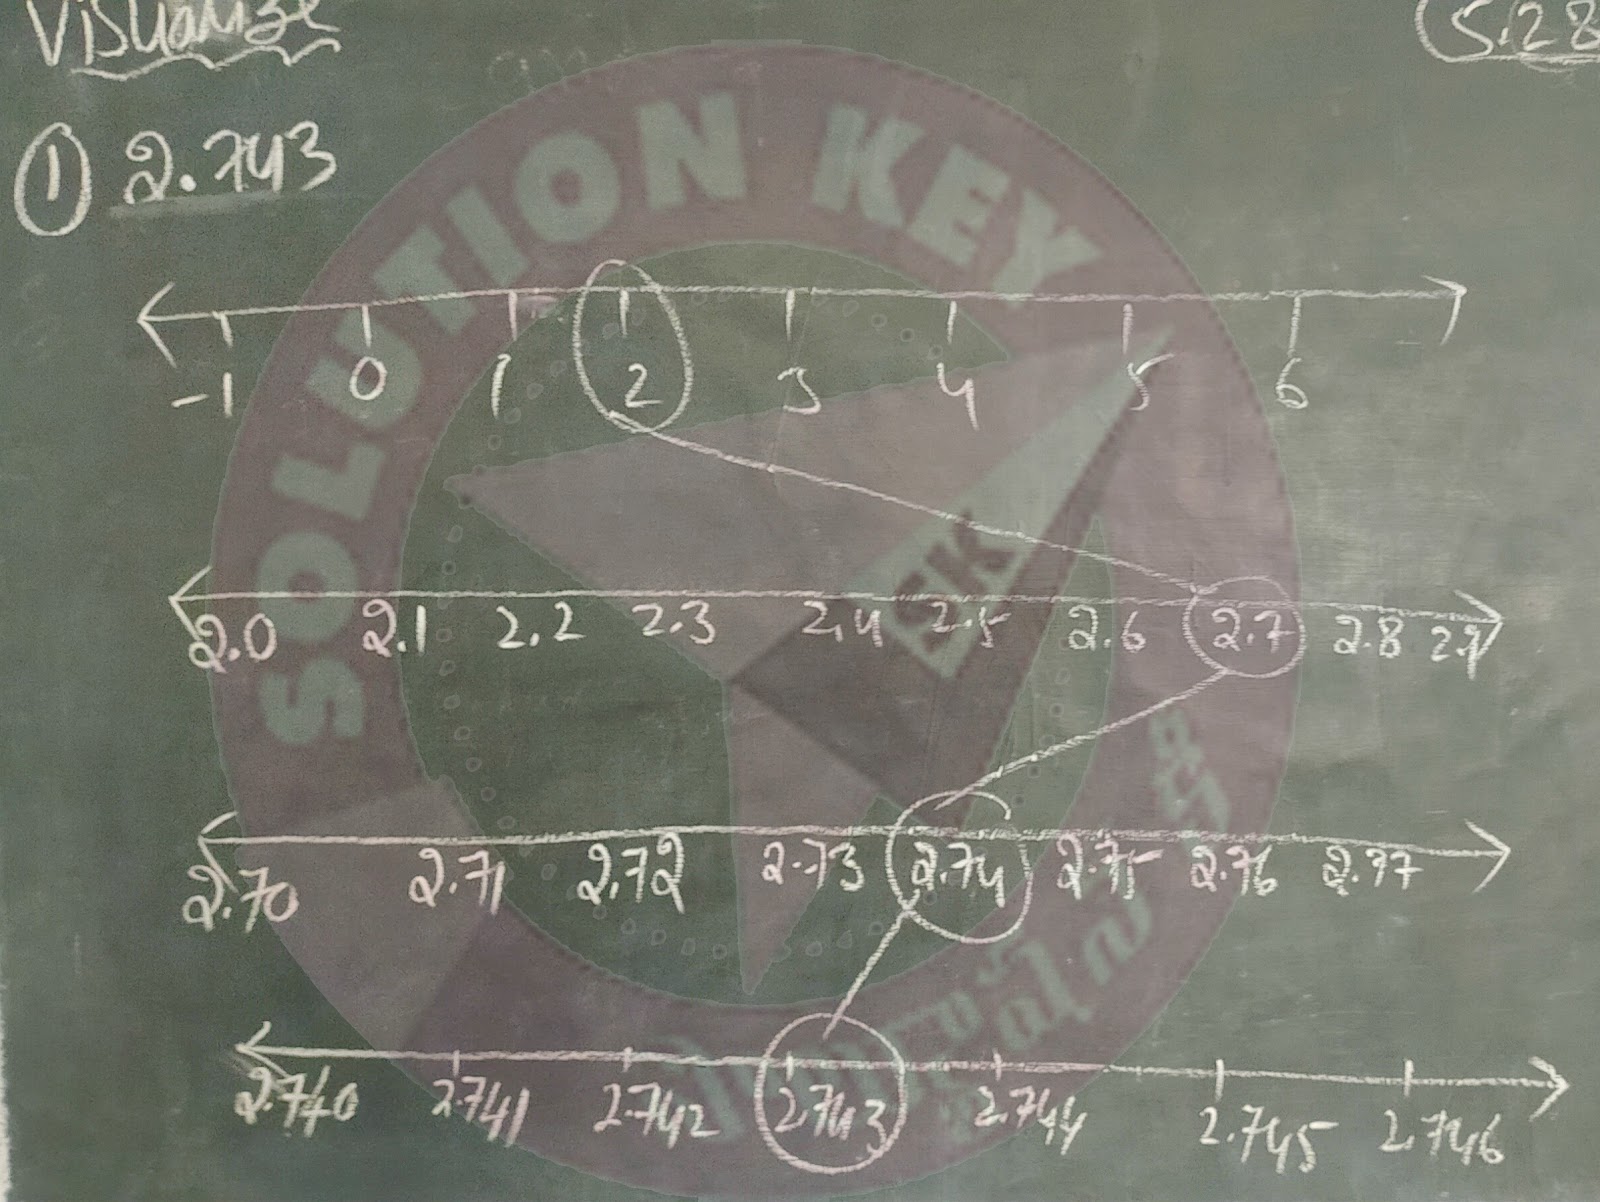 Visualize
5.28
① 2.743
SOLUTION KEY
-1 0 1 2 3 4 5 6
SK
2.0 2.1 2.2 2.3 2.4 2.5 2.6 2.7 2.8 2.9
2.70 2.71 2.72 2.73 2.74 2.75 2.76 2.77
2.740 2.741 2.742 2.743 2.744 2.745 2.746